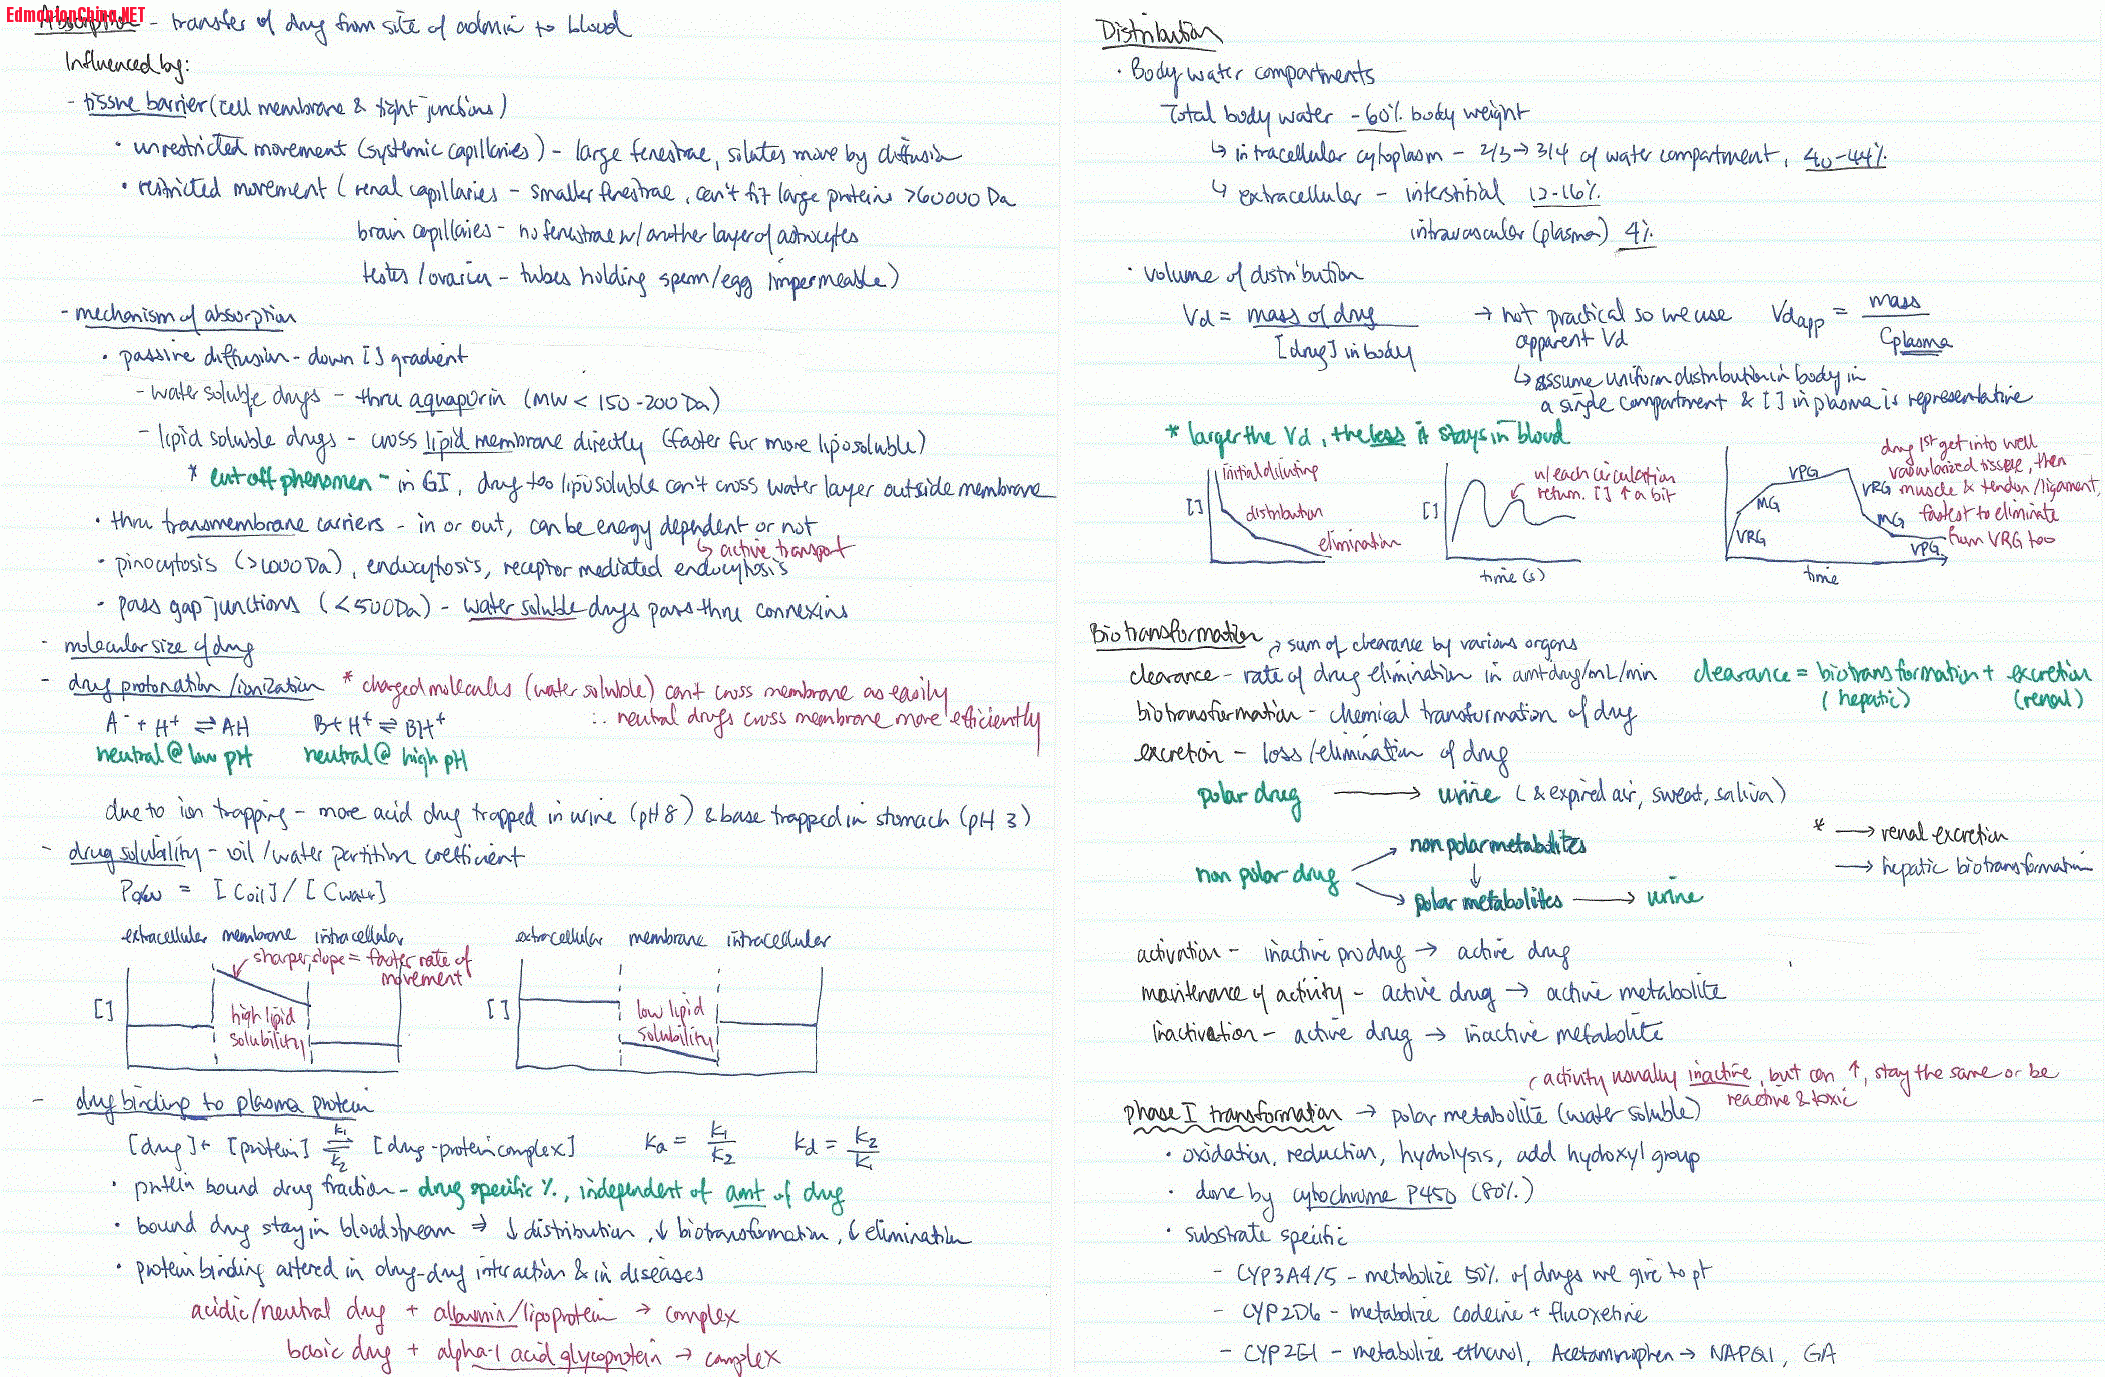 EdmontonChina.NET
Absorption - transfer of drug from site of admin to blood
Influenced by:
- tissue barrier (cell membrane & tight junctions)
· unrestricted movement (systemic capillaries) - large fenestrae, solutes move by diffusion
· restricted movement (renal capillaries - smaller fenestrae, can't fit large proteins >60000 Da
brain capillaries - no fenestrae w/ another layer of astrocytes
testes/ovaries - tubes holding sperm/egg impermeable)
- mechanism of absorption
· passive diffusion - down [] gradient
- water soluble drugs - thru aquaporin (MW < 150-200 Da)
- lipid soluble drugs - cross lipid membrane directly (faster for more liposoluble)
* cut off phenomen - in GI, drug too liposoluble can't cross water layer outside membrane
· thru transmembrane carriers - in or out, can be energy dependent or not
↳ active transport
· pinocytosis (>1000 Da), endocytosis, receptor mediated endocytosis
· pass gap junctions (<500Da) - water soluble drugs pass thru connexins
- molecular size of drug
- drug protonation/ionization * charged molecules (water soluble) can't cross membrane as easily
∴ neutral drugs cross membrane more efficiently
A⁻ + H⁺ ⇌ AH B + H⁺ ⇌ BH⁺
neutral @ low pH neutral @ high pH
due to ion trapping - more acid drug trapped in urine (pH 8) & base trapped in stomach (pH 3)
- drug solubility - oil/water partition coefficient
Po/w = [Coil] / [Cwater]
extracellular membrane intracellular
sharper slope = faster rate of movement
[]
high lipid solubility
extracellular membrane intracellular
[]
low lipid solubility
- drug binding to plasma protein
[drug] + [protein] k₁ ⇌ k₂ [drug-protein complex] Ka = k₁/k₂ Kd = k₂/k₁
· protein bound drug fraction - drug specific %, independent of amt of drug
· bound drug stay in bloodstream ⇒ ↓ distribution, ↓ biotransformation, ↓ elimination
· protein binding altered in drug-drug interaction & in diseases
acidic/neutral drug + albumin/lipoprotein → complex
basic drug + alpha-1 acid glycoprotein → complex
Distribution
· Body water compartments
Total body water - 60% body weight
↳ intracellular cytoplasm - 2/3 → 3/4 of water compartment, 40-44%
↳ extracellular - interstitial 12-16%
intravascular (plasma) 4%
· volume of distribution
Vd = mass of drug / [drug] in body → not practical so we use apparent Vd Vdapp = mass / Cplasma
↳ assume uniform distribution in body in
a single compartment & [] in plasma is representative
* larger the Vd, the less it stays in blood
[]
initial diluting
distribution
elimination
[]
w/ each circulation
return. [] ↑ a bit
time (s)
VRG
MG
VPG
VRG
MG
VPG
time
drug 1st get into well
vascularized tissue, then
muscle & tendon/ligament,
fastest to eliminate
from VRG too
Biotransformation
→ sum of clearance by various organs
clearance - rate of drug elimination in amt drug/mL/min
clearance = biotransformation + excretion
(hepatic) (renal)
biotransformation - chemical transformation of drug
excretion - loss/elimination of drug
polar drug → urine (& expired air, sweat, saliva)
* → renal excretion
→ hepatic biotransformation
non polar metabolites
non polar drug
↓
polar metabolites → urine
activation - inactive prodrug → active drug
maintenance of activity - active drug → active metabolite
inactivation - active drug → inactive metabolite
activity usually inactive, but can ↑, stay the same or be
reactive & toxic
phase I transformation → polar metabolite (water soluble)
· oxidation, reduction, hydrolysis, add hydoxyl group
· done by cytochrome P450 (80%)
· substrate specific
- CYP3A4/5 - metabolize 50% of drugs we give to pt
- CYP2D6 - metabolize codeine + fluoxetine
- CYP2E1 - metabolize ethanol, Acetaminophen → NAPQI, GA